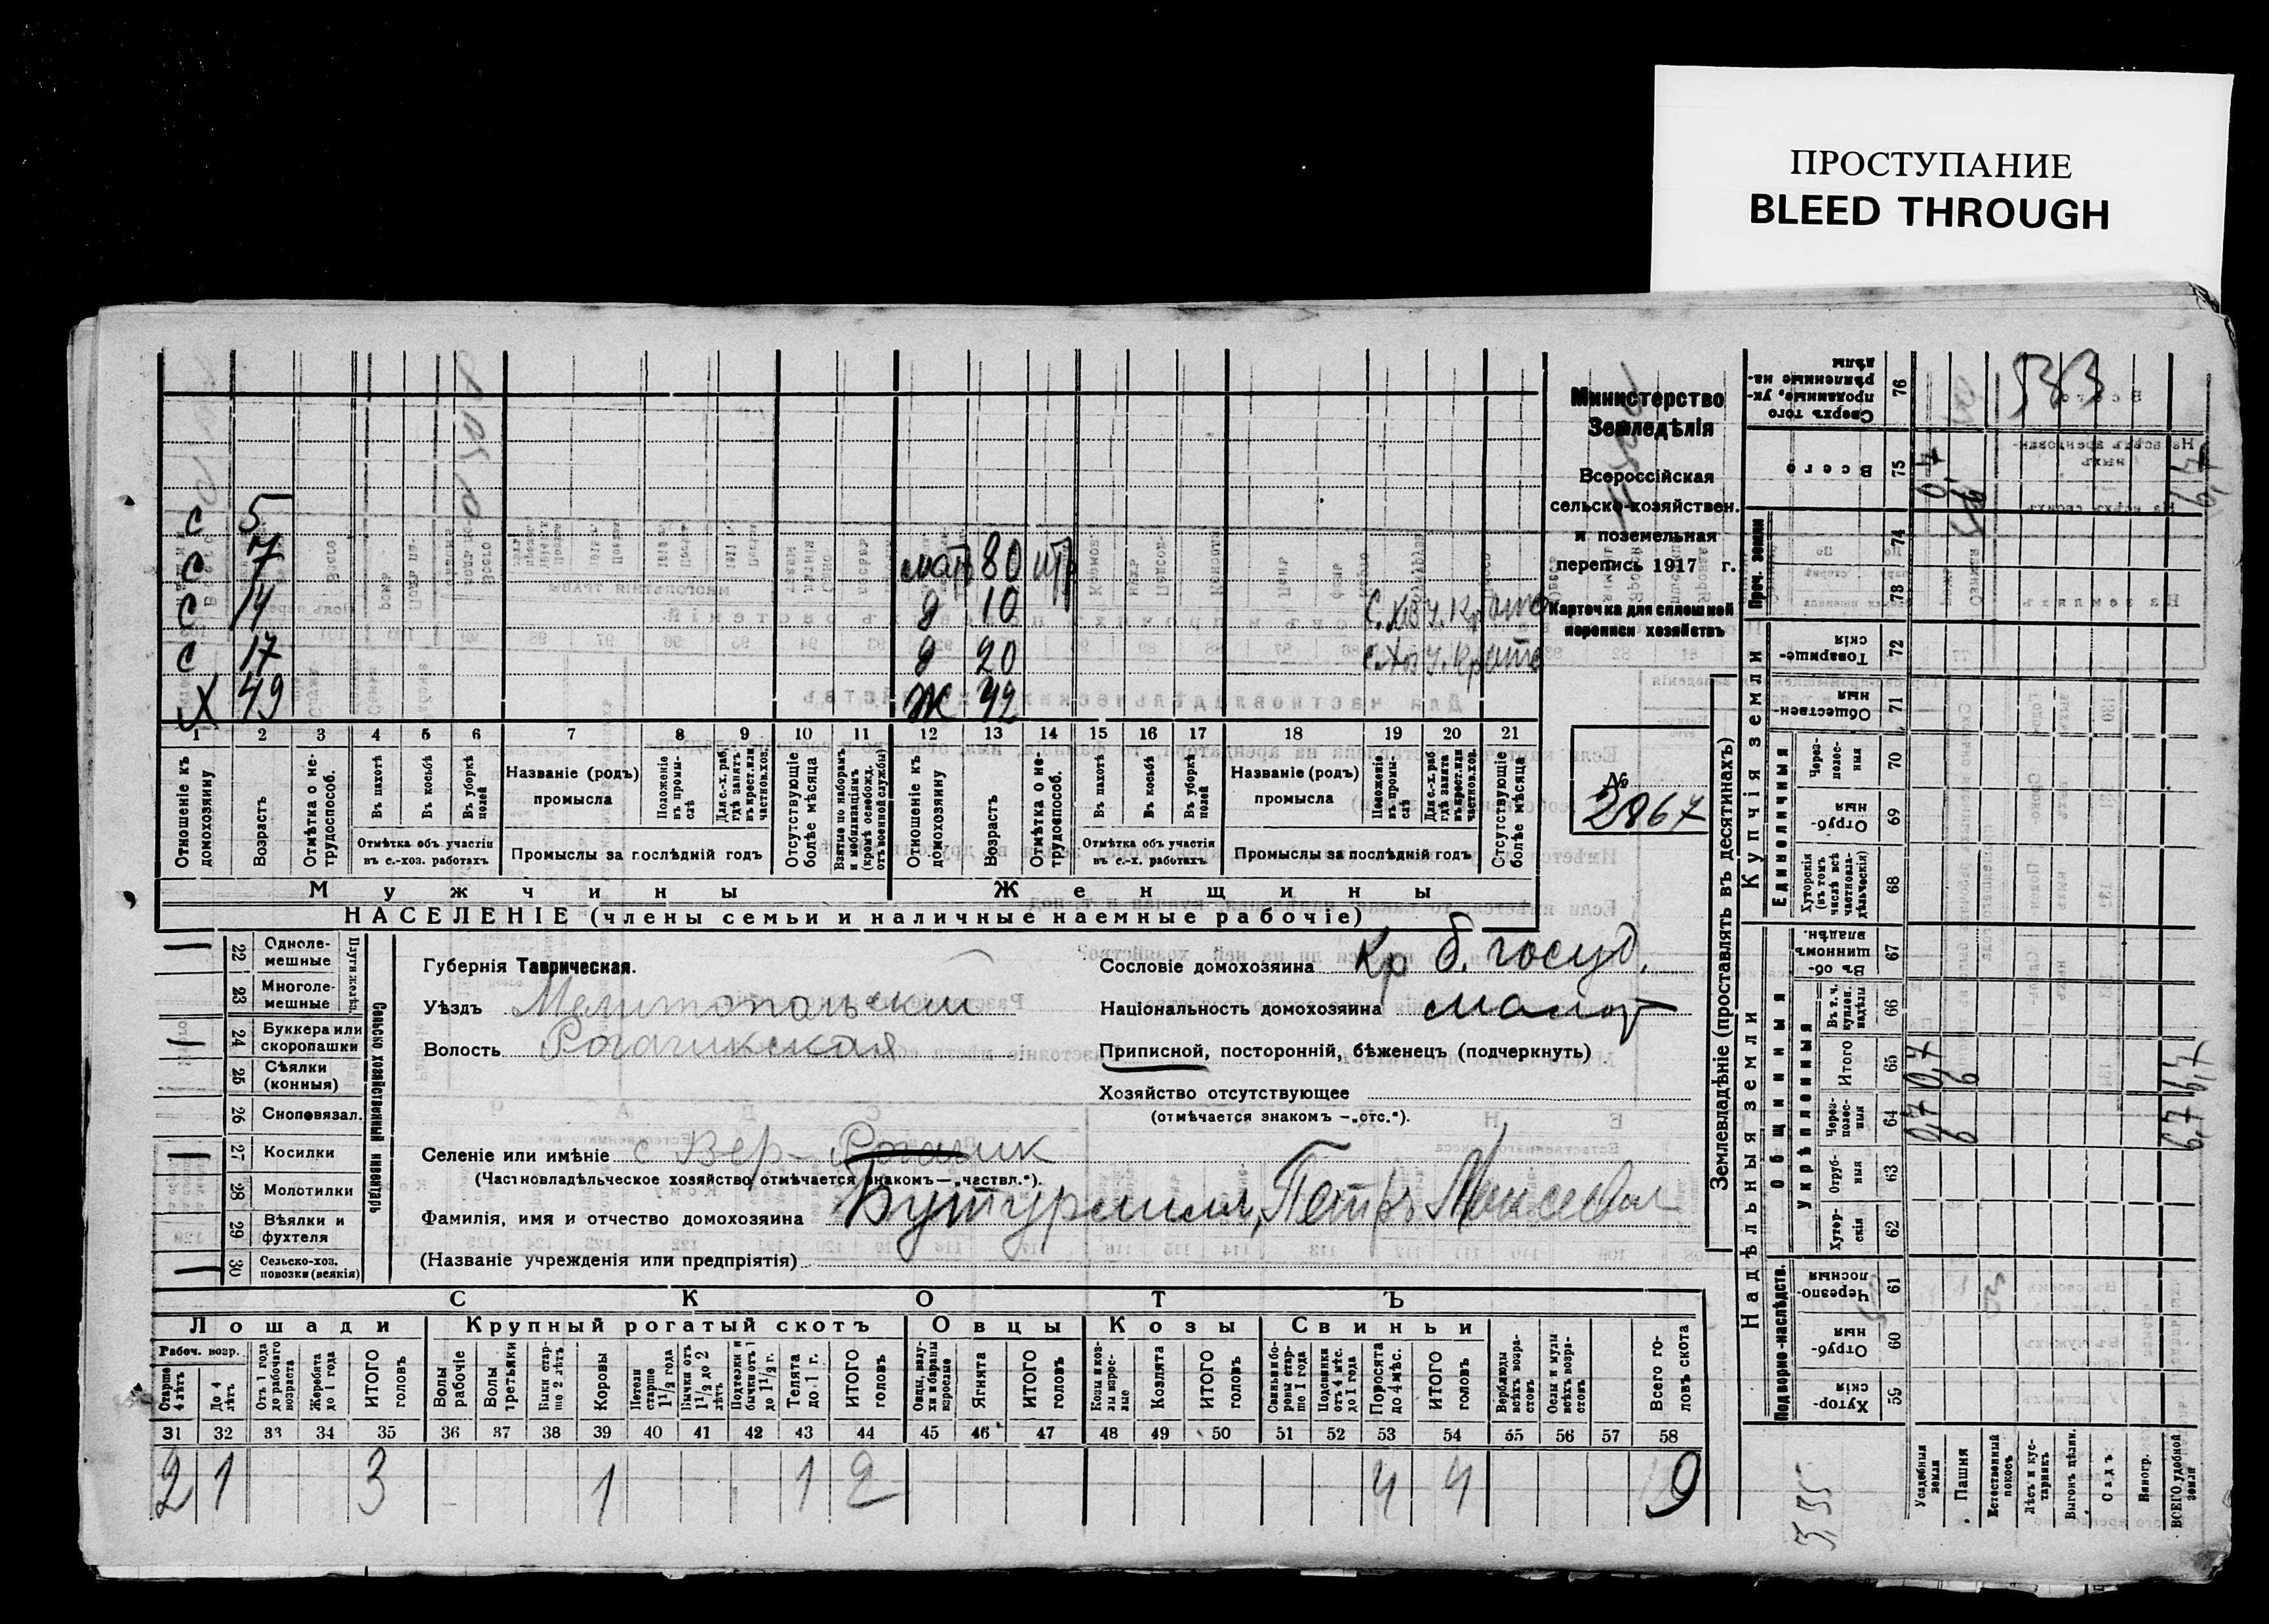 ПРОСТУПАНИЕ
BLEED THROUGH
533
С 5
С 7 мат 80 нтр
С 14 д 10
С 17 д 20
Х 49 Ж 42
1 2 3 4 5 6 7 8 9 10 11 12 13 14 15 16 17 18 19 20 21
Отношеніе къ домохозяину
Возрастъ
Отмѣтка о не-трудоспособ.
Въ пахотѣ
Въ косьбѣ
Въ уборкѣ полей
Отмѣтка объ участіи въ с.-хоз. работахъ
Названіе (родъ) промысла
Положеніе въ промы-слѣ
Для с.-х. раб. гдѣ занятъ въ крест. или частнов. хоз.
Промыслы за послѣдній годъ
Отсутствующіе болѣе мѣсяца
Взятые по наборамъ и мобилизаціямъ (кромѣ освобожд. отъ военной службы)
Отношеніе къ домохозяину
Возрастъ
Отмѣтка о не-трудоспособ.
Въ пахотѣ
Въ косьбѣ
Въ уборкѣ полей
Отмѣтка объ участіи въ с.-х. работахъ
Названіе (родъ) промысла
Положеніе въ промы-слѣ
Для с.-х. раб. гдѣ занята въ крест. или частнов. хоз.
Промыслы за послѣдній годъ
Отсутствующіе болѣе мѣсяца
Мужчины
Женщины
НАСЕЛЕНІЕ (члены семьи и наличные наемные рабочіе)
Министерство
Земледѣлія
Всероссійская
сельско-хозяйствен.
и поземельная
перепись 1917 г.
Карточка для сплошной
переписи хозяйствъ
№
2867
22 Одноле-мешные
23 Многоле-мешные
24 Буккера или скоропашки
25 Сѣялки (конныя)
26 Сноповязал.
27 Косилки
28 Молотилки
29 Вѣялки и фухтеля
30 Сельско-хоз. повозки (всякія)
Сельско хозяйственный инвентарь
Губернія Таврическая.
Уѣздъ Мелитопольский
Волость Рогачикская
Сословіе домохозяина Кр б. госуд.
Національность домохозяина малор
Приписной, посторонній, бѣженецъ (подчеркнуть)
Хозяйство отсутствующее
(отмѣчается знакомъ —„отс.“).
Селеніе или имѣніе с Вер- Рогачик
(Частновладѣльческое хозяйство отмѣчается знакомъ—„частвл.“).
Фамилія, имя и отчество домохозяина Петръ
(Названіе учрежденія или предпріятія)
СКОТЪ
Лошади
Крупный рогатый скотъ
Овцы
Козы
Свиньи
Рабоч. возр.
Старше 4 лѣтъ
До 4 лѣтъ
Отъ 1 года до рабочаго возраста
Жеребята до 1 года
ИТОГО головъ
Волы рабочіе
Волы третьяки
Быки стар-ше 2 лѣтъ
Коровы
Нетели старше 1½ года
Бычки отъ 1½ до 2 лѣтъ
Подтелки и бычки отъ 1 до 1½ г.
Телята до 1 г.
ИТОГО головъ
Овцы, валу-хи и бараны взрослые
Ягнята
ИТОГО головъ
Козы и коз-лы взрос-лые
Козлята
ИТОГО головъ
Свиньи и бо-ровы стар-ше 1 года
Подсвинки отъ 4 мѣс. до 1 года
Поросята до 4 мѣс.
ИТОГО головъ
Верблюды всѣхъ возра-стовъ
Ослы и мулы всѣхъ возра-стовъ
Всего го-ловъ скота
31 32 33 34 35 36 37 38 39 40 41 42 43 44 45 46 47 48 49 50 51 52 53 54 55 56 57 58
2 1 3 1 1 2 4 4 9
Землевладѣніе (проставлять въ десятинахъ)
Надѣльныя земли
Купчія земли
Проч. земли
Подворно-наслѣдств.
Общинныя
Укрѣпленныя
Единоличныя
Хутор-скія 59
Отруб-ныя 60
Черезпо-лосныя 61
Хутор-скія 62
Отруб-ныя 63
Через-полос-ныя 64
Итого 65
Въ т. ч. куплен. надѣлы 66
Въ об-щинномъ владѣн. 67
Хуторскія (въ томъ числѣ всѣ частновла-дѣльческія) 68
Отруб-ныя 69
Через-полос-ныя 70
Обществен-ныя 71
Товарище-скія 72
73
74
Всего 75
Сверхъ того проданные, ук-рѣпленные на-дѣлы 76
Усадебныя земля
Пашня
Естественный покосъ
Лѣсъ и кус-тарникъ
Выгонъ цѣлин.
Садъ
Виногр.
ВСЕГО удобной земли
0,7 6 6,7
0,7 6 6,7
0,7 6 6,7
3,35